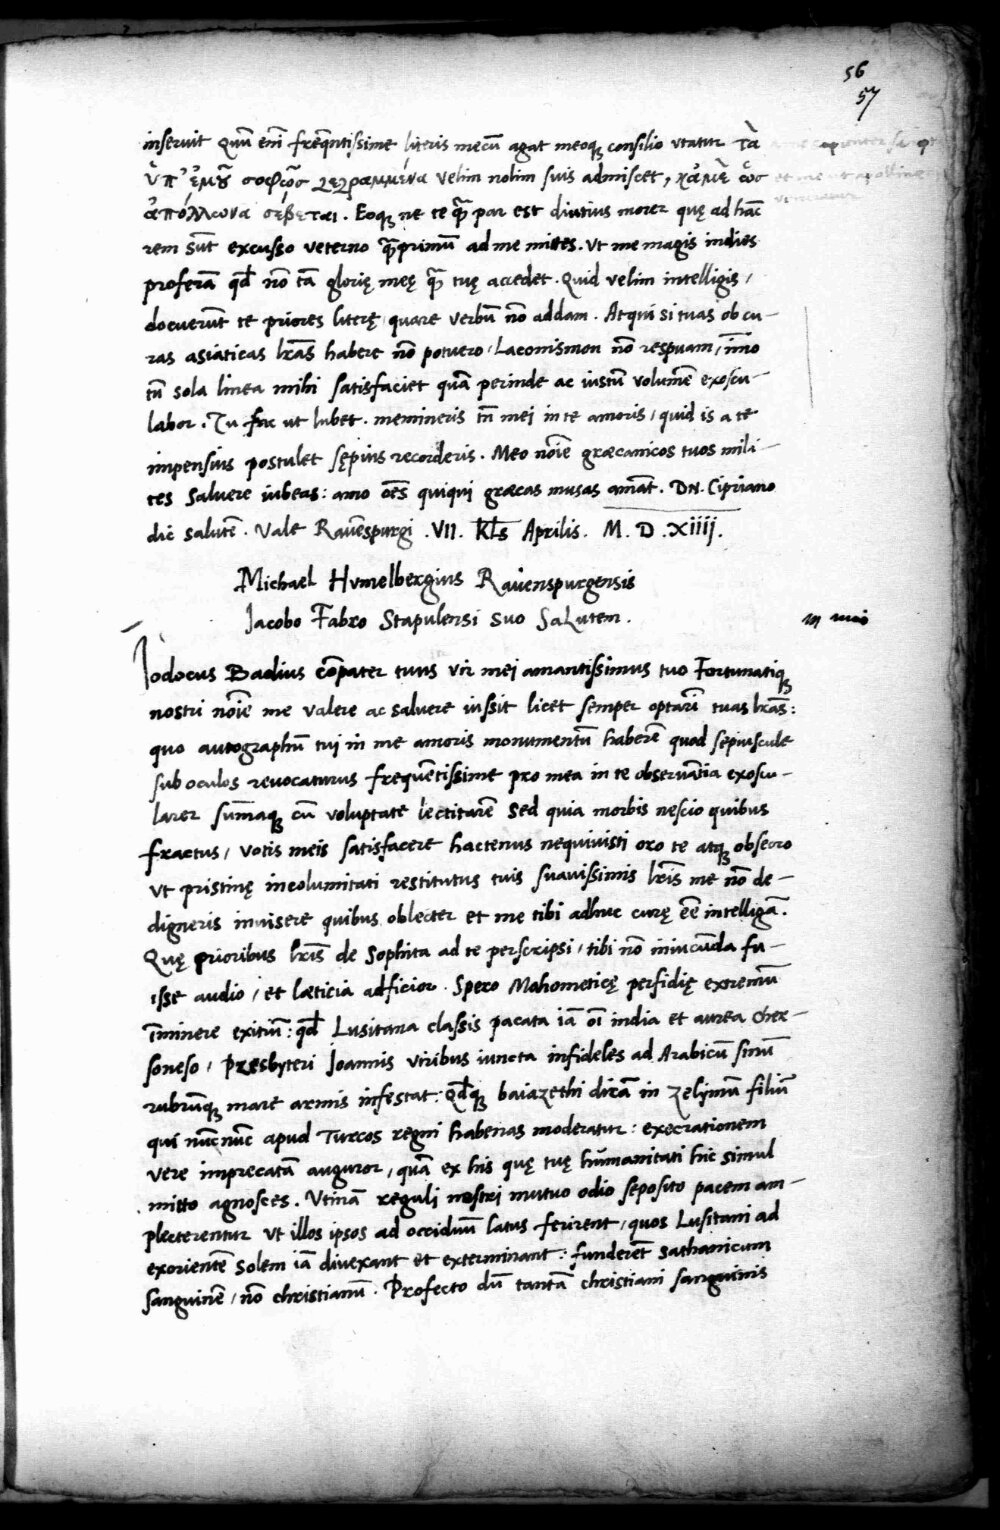 56
57
inseruit Quũ eñi freq̃ntissime literis mecũ agat meoqꝫ consilio vtatur τὰ
ὑπ' ἐμοῦ σοφῶς γεγραμμένα velim nolim suis admiscet, κἀμὲ ὡς
ἀπόλλωνα σέβεται. Eoqꝫ ne te q̃ par est diutius morer quę ad hãc
rem sũt excusso veterno q̃primũ ad me mittes. Vt me magis indies
proferã qđ nõ tã glorię meę q̃ tuę accedet. Quid velim intelligis,
docuerũt te priores literę quare verbũ nõ addam. Atqui si tuas ob cu-
ras asiaticas l̃ras habere nõ potuero, Laconismon nõ respuam, ĩmo
tñ sola linea mihi satisfaciet quã perinde ac iustũ volumẽ exoscu-
labor. Tu fac ut lubet. memineris tñ mei in te amoris, quid is a te
impensius postulet sępius recorderis. Meo noĩe græcanicos tuos mili-
tes saluere iubeas: amo oẽs quiqui græcas musas amãt. DN. Cipriano
dic salutẽ. Vale Rauẽspurgi .VII. Kl̃s Aprilis. M. D. XIIII.
Michael Hvmelbergius Ravenspurgensis
Jacobo Fabro Stapulensi suo Salutem.
Iodocus Badius cõpater tuus vir mei amantissimus tuo Fortunatiqꝫ
nostri noĩe me valere ac saluere iussit licet semper optarĩ tuas l̃ras:
quo autographũ tui in me amoris monumentũ haberẽ quod sepiuscule
sub oculos reuocaturus frequẽtissime pro mea in te obseruãtia exoscu-
larer sum̃aqꝫ cũ voluptate lectitarẽ sed quia morbis nescio quibus
fractus, votis meis satisfacere hactenus nequiuisti oro te atqꝫ obsecro
vt pristinę incolumitati restitutus tuis suauissimis l̃ris me nõ de-
digneris inuisere quibus oblecter et me tibi adhuc curę eẽ intelligã.
Quę prioribus l̃ris de Sophita ad te perscripsi, tibi nõ iniucũda fu-
isse audio, et læticia adficior. Spero Mahometicę perfidię extremũ
ĩminere exitiũ: qđ Lusitana classis pacata iã oĩ india et aurea cher-
soneso, Presbyteri Joannis viribus iuncta infideles ad Arabicũ sinũ
rubrũqꝫ mare armis infestat: Qđqꝫ baiazethi dirã in Zelymũ filiũ
qui nũc nũc apud Turcos regni habenas moderatur: execrationem
vere imprecatã auguror, quã ex his quę tuę hũmanitati hic simul
mitto agnosces. Vtinã reguli nostri mutuo odio seposito pacem am-
plecterentur vt illos ipsos ad occiduũ latus ferirent, quos Lusitani ad
exorientẽ solem iã diuexant et exterminant: funderẽt sathanicum
sanguinẽ, nõ christianũ. Profecto dũ tantã christiani sanguinis